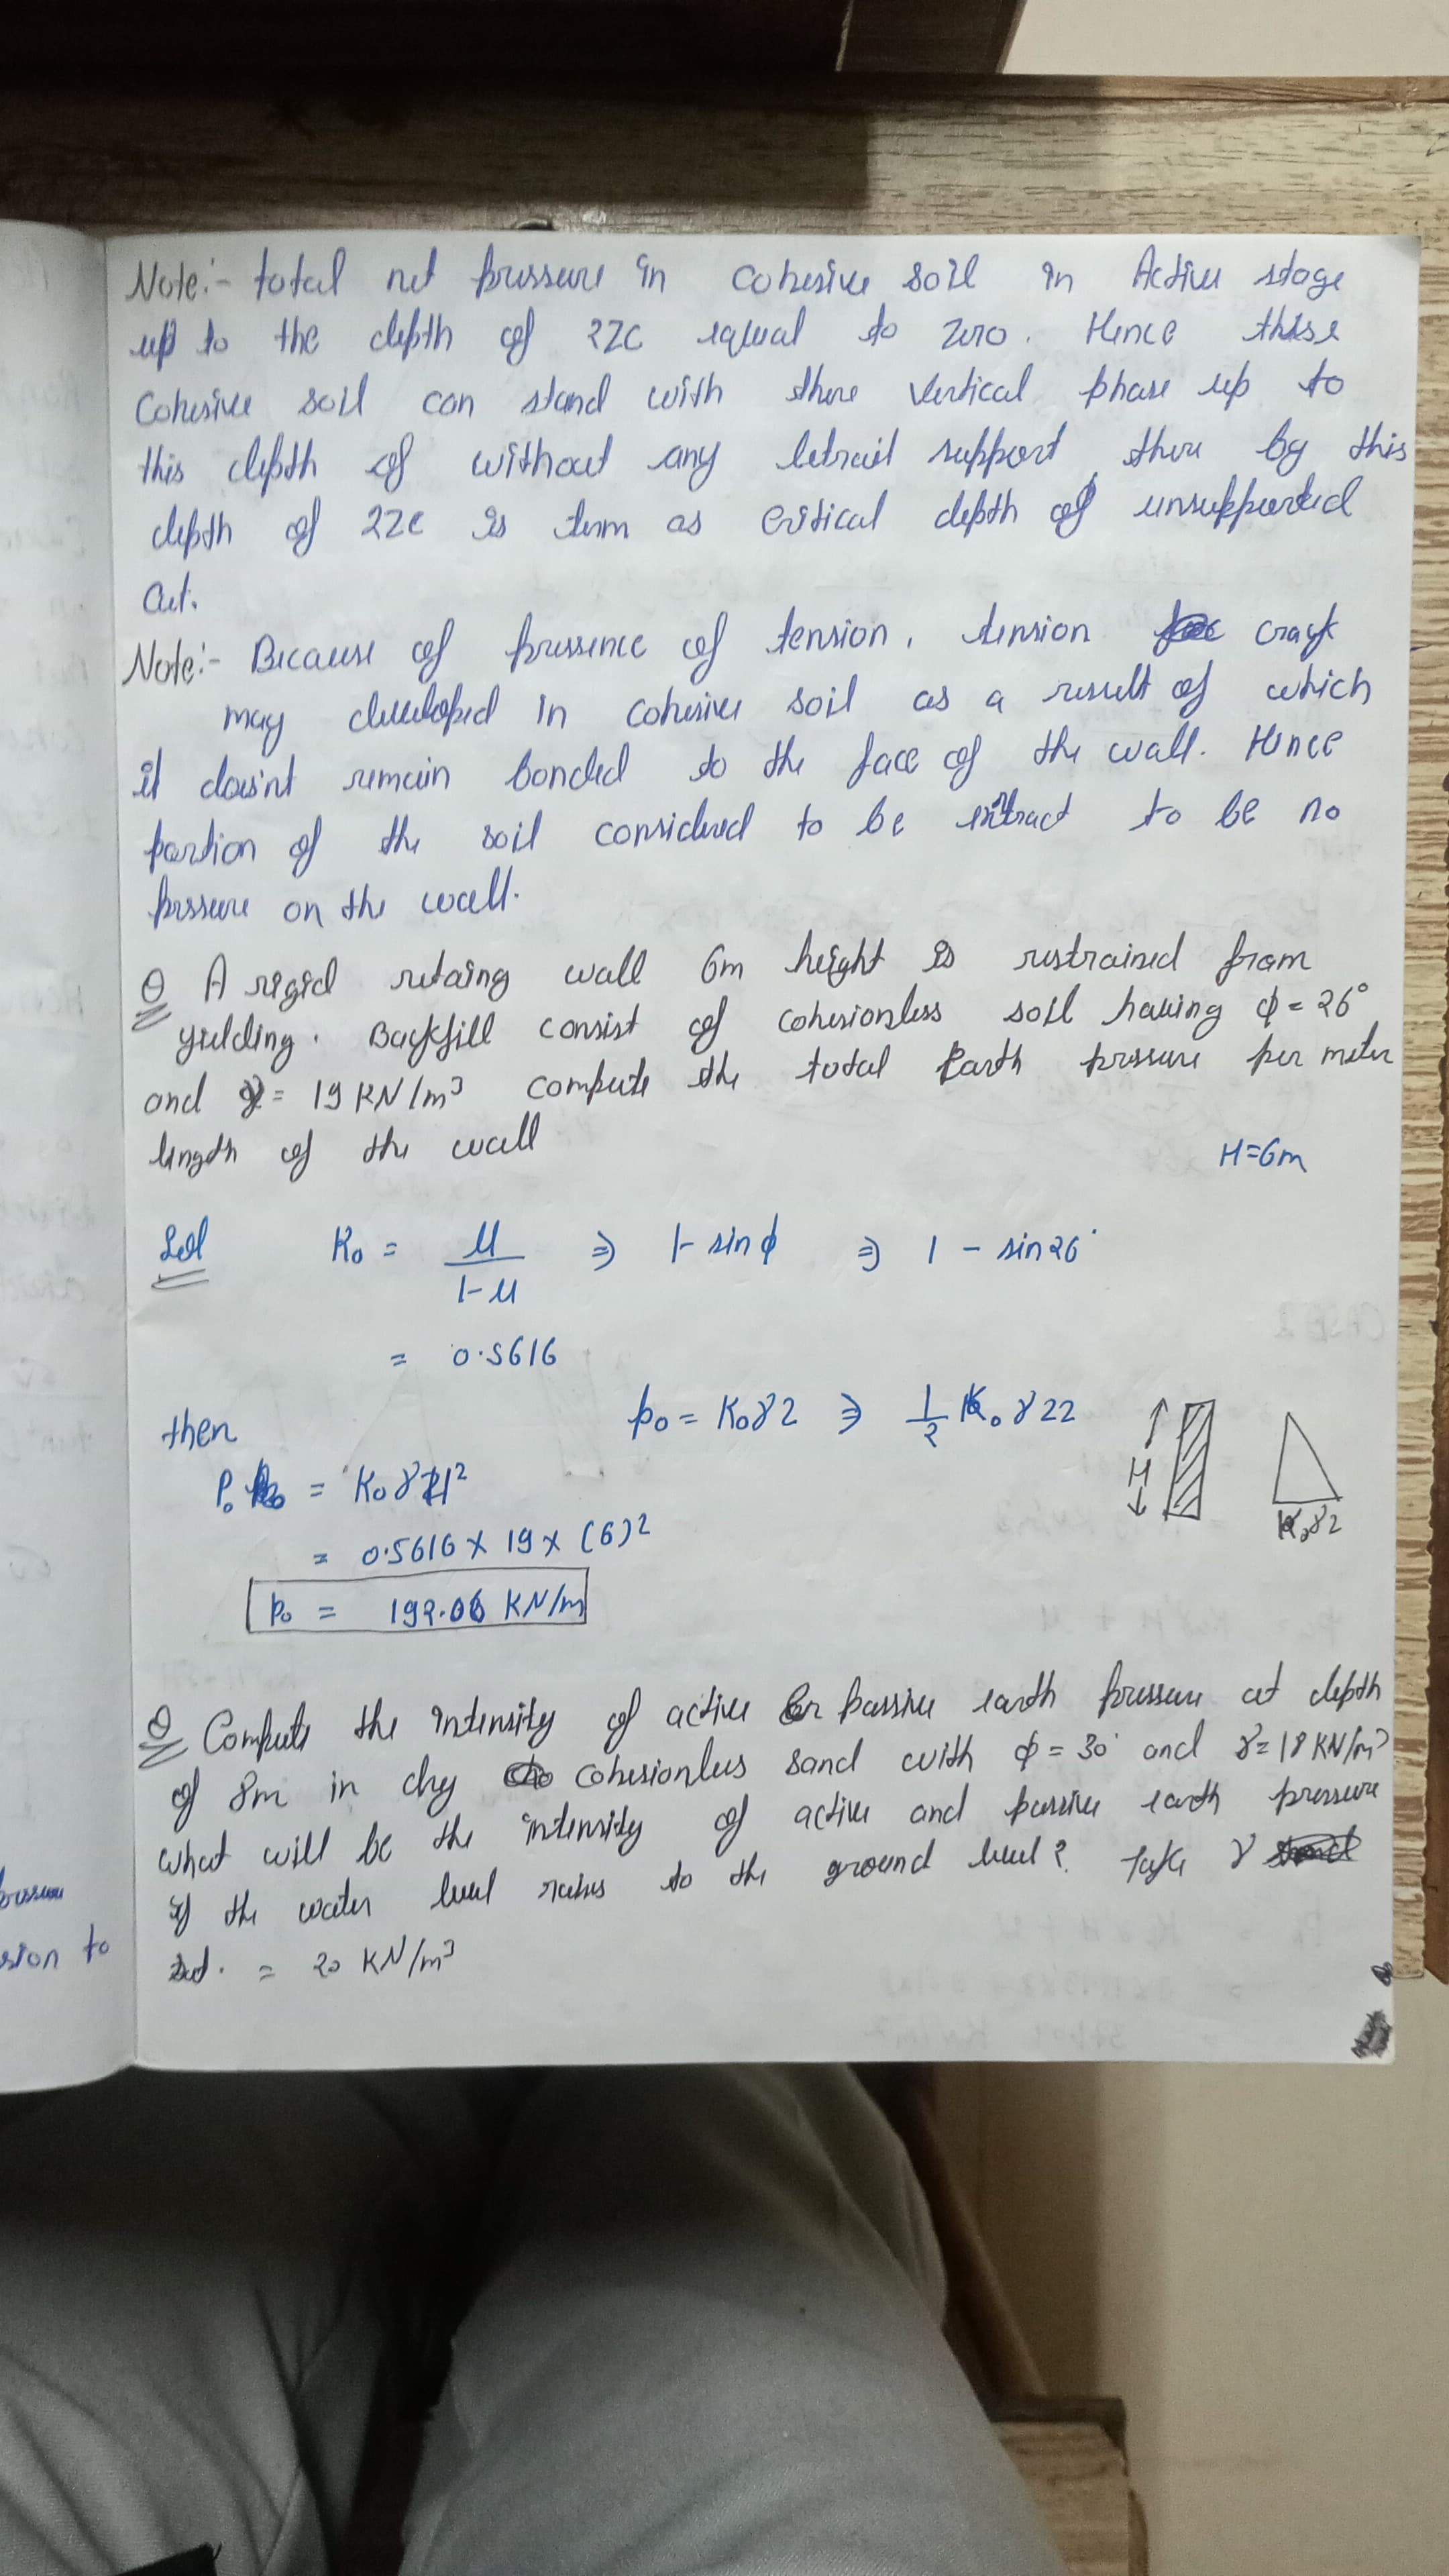 Note:- total net pressure in cohesive soil in Active stage
up to the depth of 2Zc equal to zero. Hence these
cohesive soil can stand with there vertical phase up to
this depth of without any letrail support there by this
depth of 2Zc is term as critical depth of unsupported
cut.
Note:- Because of pressence of tension, tension crack
may developed in cohesive soil as a result of which
it does'nt remain bonded to the face of the wall. Hence
portion of the soil considered to be extract to be no
pressure on the wall.
Q A rigid retaing wall 6m height is restrained from
yielding. Backfill consist of cohesionless soil having φ = 26°
and γ = 19 KN/m³ compute the total Earth pressure per meter
length of the wall
H=6m
Sol K₀ = μ/1-μ ⇒ 1- sinφ ⇒ 1 - sin26°
= 0.5616
then p₀ = K₀γZ ⇒ 1/2 K₀γZZ
P₀ = K₀γH²
= 0.5616 × 19 × (6)²
p₀ = 192.06 KN/m
H
K₀γZ
Q Compute the intensity of active & passive earth pressure at depth
of 8m in dry cohesionless sand with φ = 30° and γ = 18 KN/m³
what will be the intensity of active and passive earth pressure
if the water level raises to the ground level? Take γ
sat. = 20 KN/m³
pressure
sion to